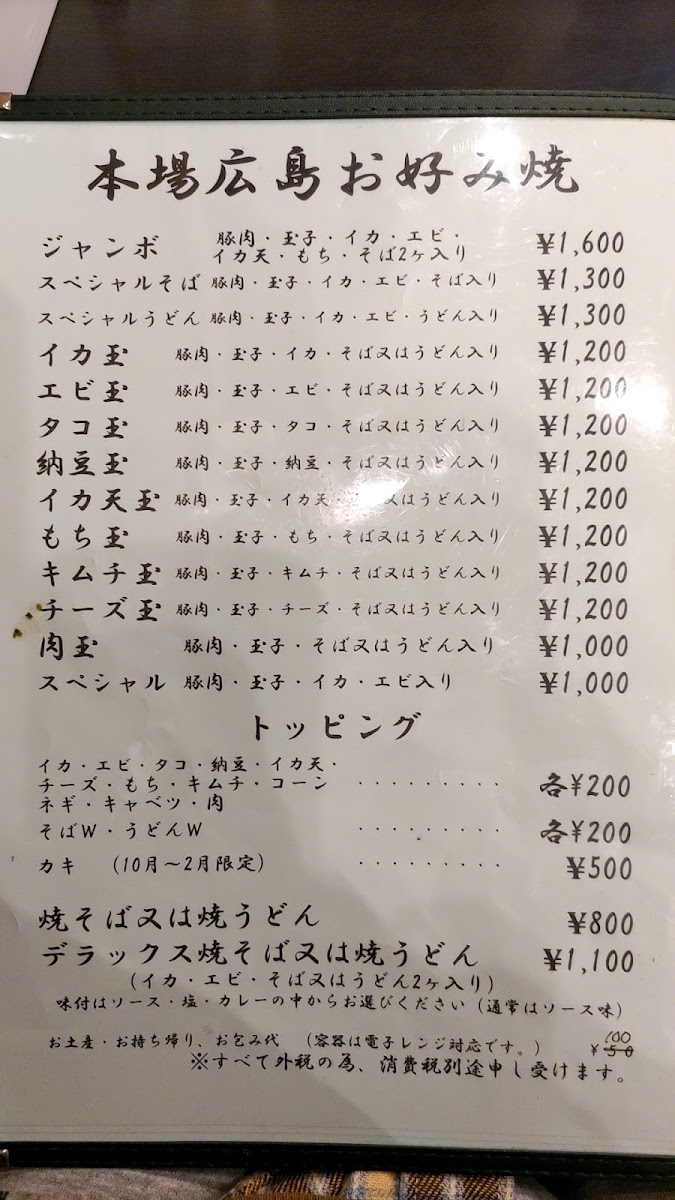 本場広島お好み焼
ジャンボ 豚肉・玉子・イカ・エビ・ ¥1,600
イカ天・もち・そば2ヶ入り
スペシャルそば 豚肉・玉子・イカ・エビ・そば入り ¥1,300
スペシャルうどん 豚肉・玉子・イカ・エビ・うどん入り ¥1,300
イカ玉 豚肉・玉子・イカ・そば又はうどん入り ¥1,200
エビ玉 豚肉・玉子・エビ・そば又はうどん入り ¥1,200
タコ玉 豚肉・玉子・タコ・そば又はうどん入り ¥1,200
納豆玉 豚肉・玉子・納豆・そば又はうどん入り ¥1,200
イカ天玉 豚肉・玉子・イカ天・又はうどん入り ¥1,200
もち玉 豚肉・玉子・もち・そば又はうどん入り ¥1,200
キムチ玉 豚肉・玉子・キムチ・そば又はうどん入り ¥1,200
チーズ玉 豚肉・玉子・チーズ・そば又はうどん入り ¥1,200
肉玉 豚肉・玉子・そば又はうどん入り ¥1,000
スペシャル 豚肉・玉子・イカ・エビ入り ¥1,000
トッピング
イカ・エビ・タコ・納豆・イカ天・
チーズ・もち・キムチ・コーン ・・・・・・・・・ 各¥200
ネギ・キャベツ・肉
そばW・うどんW ・・・・・・・・・ 各¥200
カキ (10月～2月限定) ・・・・・・・・・ ¥500
焼そば又は焼うどん ¥800
デラックス焼そば又は焼うどん ¥1,100
(イカ・エビ・そば又はうどん2ヶ入り)
味付はソース・塩・カレーの中からお選びください (通常はソース味)
100
お土産・お持ち帰り、お包み代 (容器は電子レンジ対応です。) ¥50
※すべて外税の為、消費税別途申し受けます。